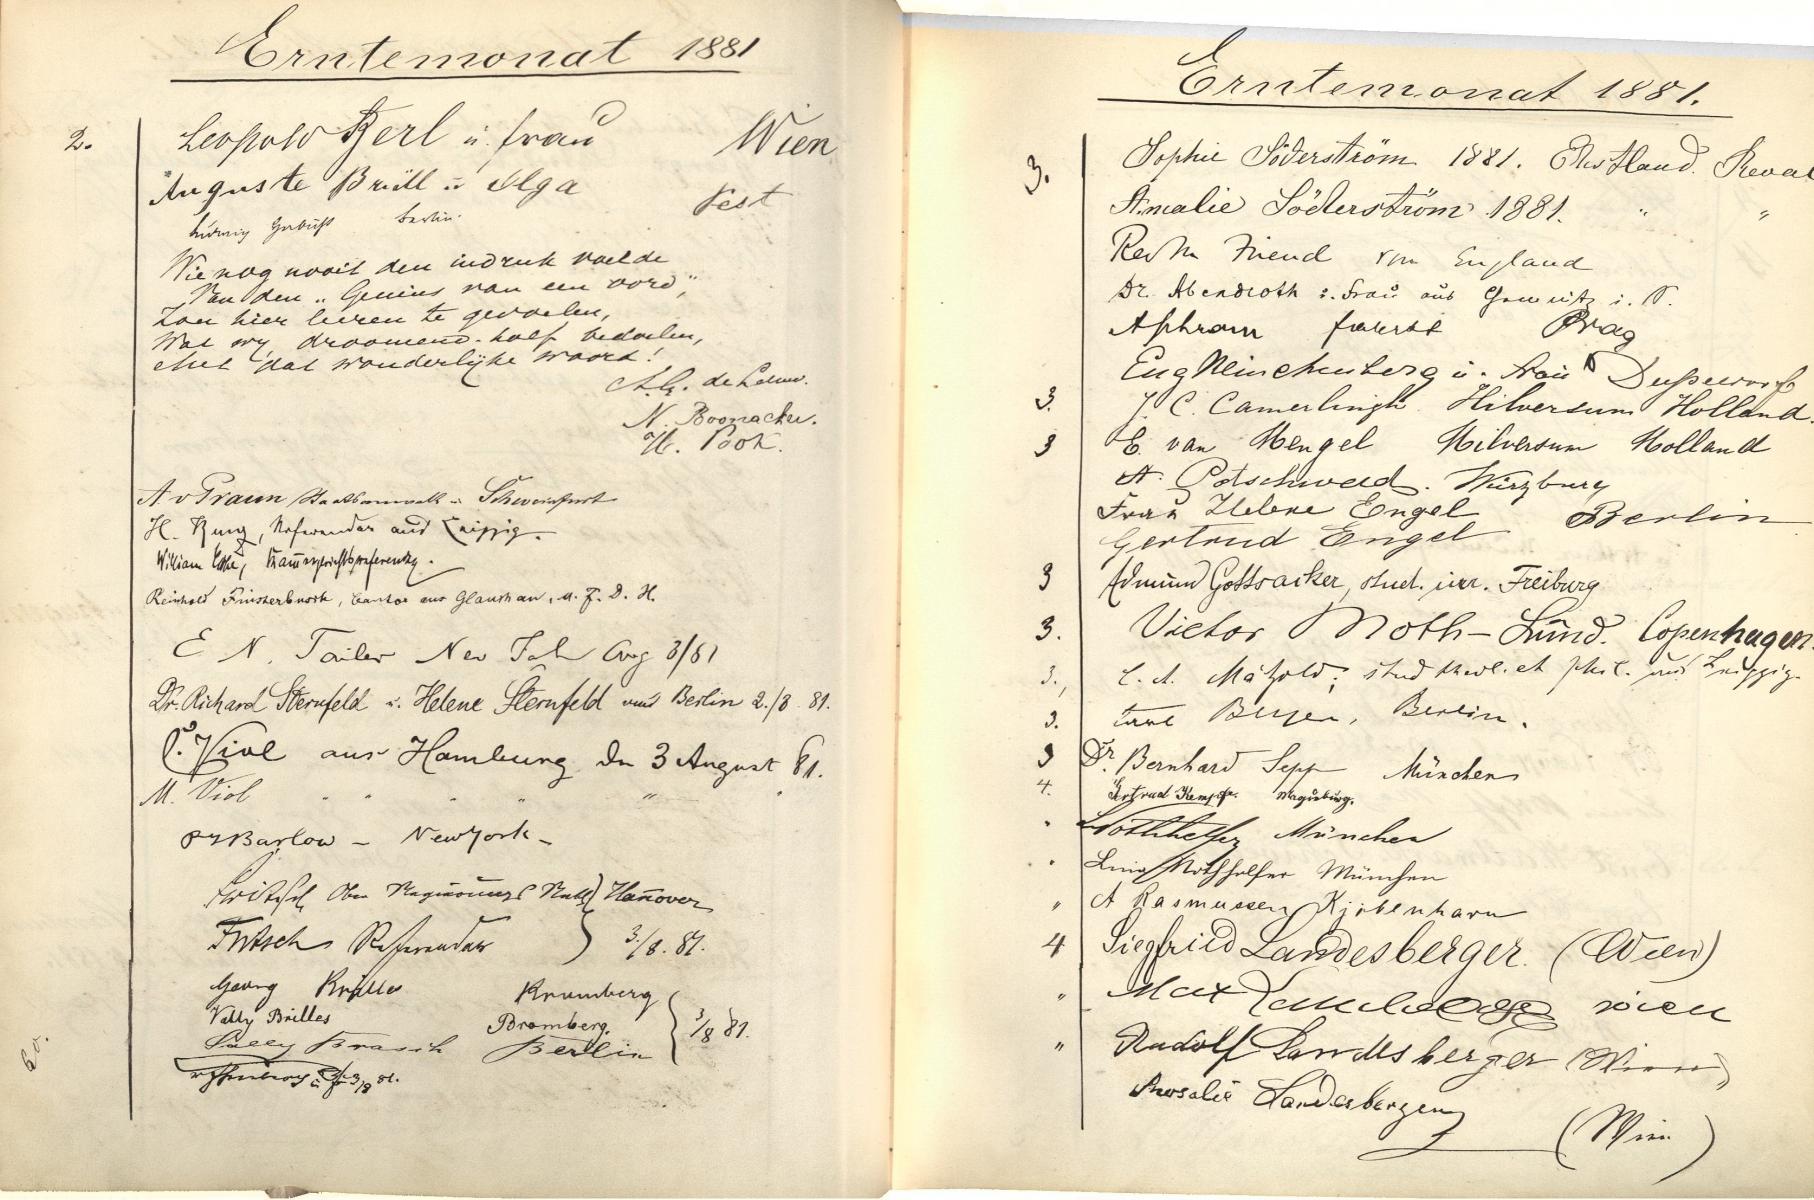 Erntemonat 1881
2.
Leopold Kerl u. frau Wien
Auguste Brüll u Olga Pest
Ludwig Berlin.
Wie nog nooit den indruk voelde
Van den „Genius van een oord",
Zou hier leeren te gevoelen,
Wat wy, droomend-half bedoelen,
Met dat wonderlyke woord!
A.G. de Leeuw.
N. Boomacker.
H. Pook.
A v Praun Staatsanwalt Schweinfurt
H. Kunz, Referendar aus Leipzig.
William Kammergerichtsreferendar.
Reinhold Finsterbusch, Cantor aus Glauchau, u. F. D. H.
E. N. Tailer New York Aug 3/81
Dr. Richard Sternfeld u. Helene Sternfeld aus Berlin 2./8. 81.
C. Viol aus Hamburg den 3 August 81.
M. Viol " " " " "
Barlow – New York –
Fritsch Ober Regierungs Rath Hannover
Fritsch Referendar 3./8. 81.
Georg Brilles Bromberg
Vally Brilles Bromberg. 3/8 81.
Sally Brasch Berlin
3/8 81.
60.
Erntemonat 1881.
3. Sophie Söderström 1881. Ehstland. Reval
Amalie Söderström 1881. " "
Friend von England
Dr. Abendroth u. Frau aus
Prag
Eug u. Frau Düsseldorf
3. J. C. Camerlingh Hilversum Holland.
3 E. van Mengel Hilversum Holland
A. Potschwad. Würzburg
Frau Helene Engel Berlin
Gertrud Engel
3 Edmund Gottsacker, stud. iur. Freiburg
3. Victor Moth-Lund. Copenhagen.
3., C. A. Mätzold, stud theol. et phil. aus Leipzig.
3. Carl Beyer, Berlin.
3 Dr. Bernhard Sepp München
4. Gertrud Kempfe. Magdeburg.
" Nothhelfer München
" Lina Nothhelfer München
" A Rasmussen Kjöbenhavn
4 Siegfried Landesberger. (Wien)
" Max Landesberger Wien
" Rudolf Landesberger (Wien)
Rosalie Landesberger
(Wien)